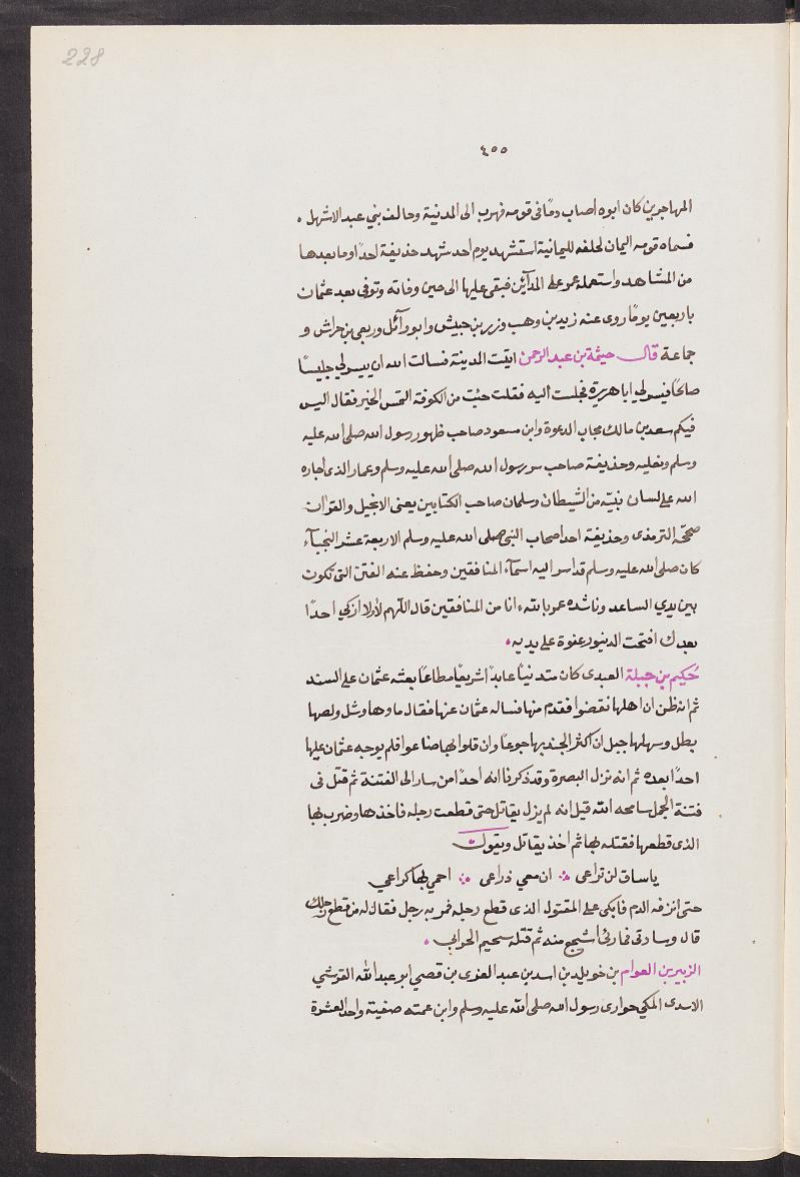 228
٤٥٥
المهاجرين كان ابوه أصاب دمًا فى قومه فهرب الى المدينة وحالف بني عبد الاشهل .
فسماه قومه اليمان لحلفه لليمانية استشهد يوم أحد شهد حذيفة احدًا وما بعدها
من المشاهد واستعمله عمر على المدآئن فبقى عليها الى حين وفاته وتوفى بعد عثمان
باربعين يومًا روى عنه زيد بن وهب وزر بن حبيش وابو وآئل وربعى بن حراش و
جماعة قال خيثمة بن عبد الرحمن اتيت المدينة فسالت الله ان ييسر لي جليسًا
صالحًا فيسر لي ابا هريرة فجلست اليه فقلت جئت من الكوفة التمس الخير فقال اليس
فيكم سعد بن مالك مجاب الدعوة وابن مسعود صاحب طهور رسول الله صلى الله عليه
وسلم ونعليه وحذيفة صاحب سر رسول الله صلى الله عليه وسلم وعمار الذى اجاره
الله على لسان نبيّه من الشيطان وسلمان صاحب الكتابين يعنى الانجيل والقرآن
صححّه الترمذى وحذيفة احد اصحاب النبى صلى الله عليه وسلم الاربعة عشر النجبآء
كان صلى الله عليه وسلم قد اسر اليه اسمآء المنافقين وحفظ عنه الفتن التى تكون
بين يدي الساعة وناشده عمر بالله ءانا من المنافقين قال اللّهم لا ولا ازكي احدًا
بعدك افتتحت الدينور عنوة على يديه .
حُكيم بن جبلة العبدى كان متدينًا عابدًا شريفًا مطاعًا بعثه عثمان على السند
ثم انه ظن ان اهلها نقضوا فقدم منها فساله عثمان عنها فقال ماوها وشل ولصها
بطل وسهلها جبل ان اكثر الجند بها جوعًا وان قلوا بها ضاعوا فلم يوجه عثمان عليها
احدًا بعده ثم انه نزل البصرة وقد ذكرنا انه احدًا من سار الى الفتنة ثم قتل فى
فتنة الجمل سامحه الله قيل انه لم يزل يقاتل حتى قطعت رجله فاخذها وضرب بها
الذى قطعها فقتله بها ثم اخذ يقاتل ويقول
ياساق لن تراعى ∴ ان معي ذراعى ∴ احمي بها كراعي
حتى انزفه الدم فاتكى على المقتول الذى قطع رجله فمر به رجل فقال له من قطع رجلك
قال وسادتى فما رئى اشجع منه ثم قتله سحيم الحداني .
الزبير بن العوام بن خويلد بن اسد بن عبد العزى بن قصي ابو عبد الله القرشي
الاسدى المكي حوارى رسول الله صلى الله عليه وسلم وابن عمته صفية واحد العشرة